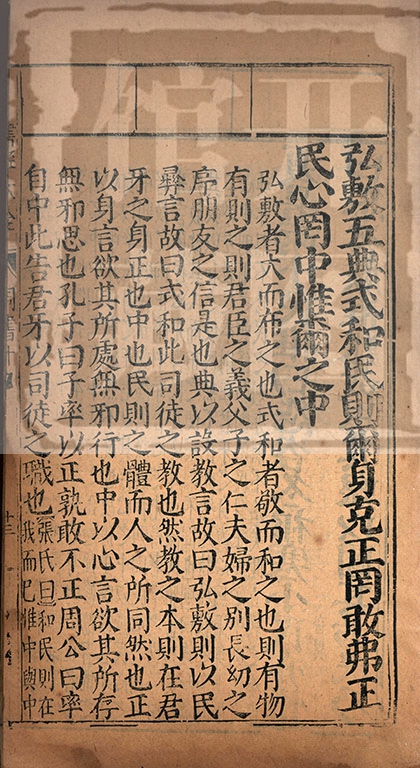 弘敷五典式和民則爾身克正罔敢弗正
民心罔中惟爾之中
弘敷者大而布之也式和者敬而和之也則有物
有則之則君臣之義父子之仁夫婦之別長幼之
序朋友之信是也典以設教言故曰弘敷則以民
彝言故曰式和此司徒之教也然教之本則在君
牙之身正也中也民則之體而人之所同然也正
以身言欲其所處無邪行也中以心言欲其所存
無邪思也孔子曰子率以正孰敢不正周公曰率
自中此告君牙以司徒之職也
張氏曰和民則在
我而已惟中與中